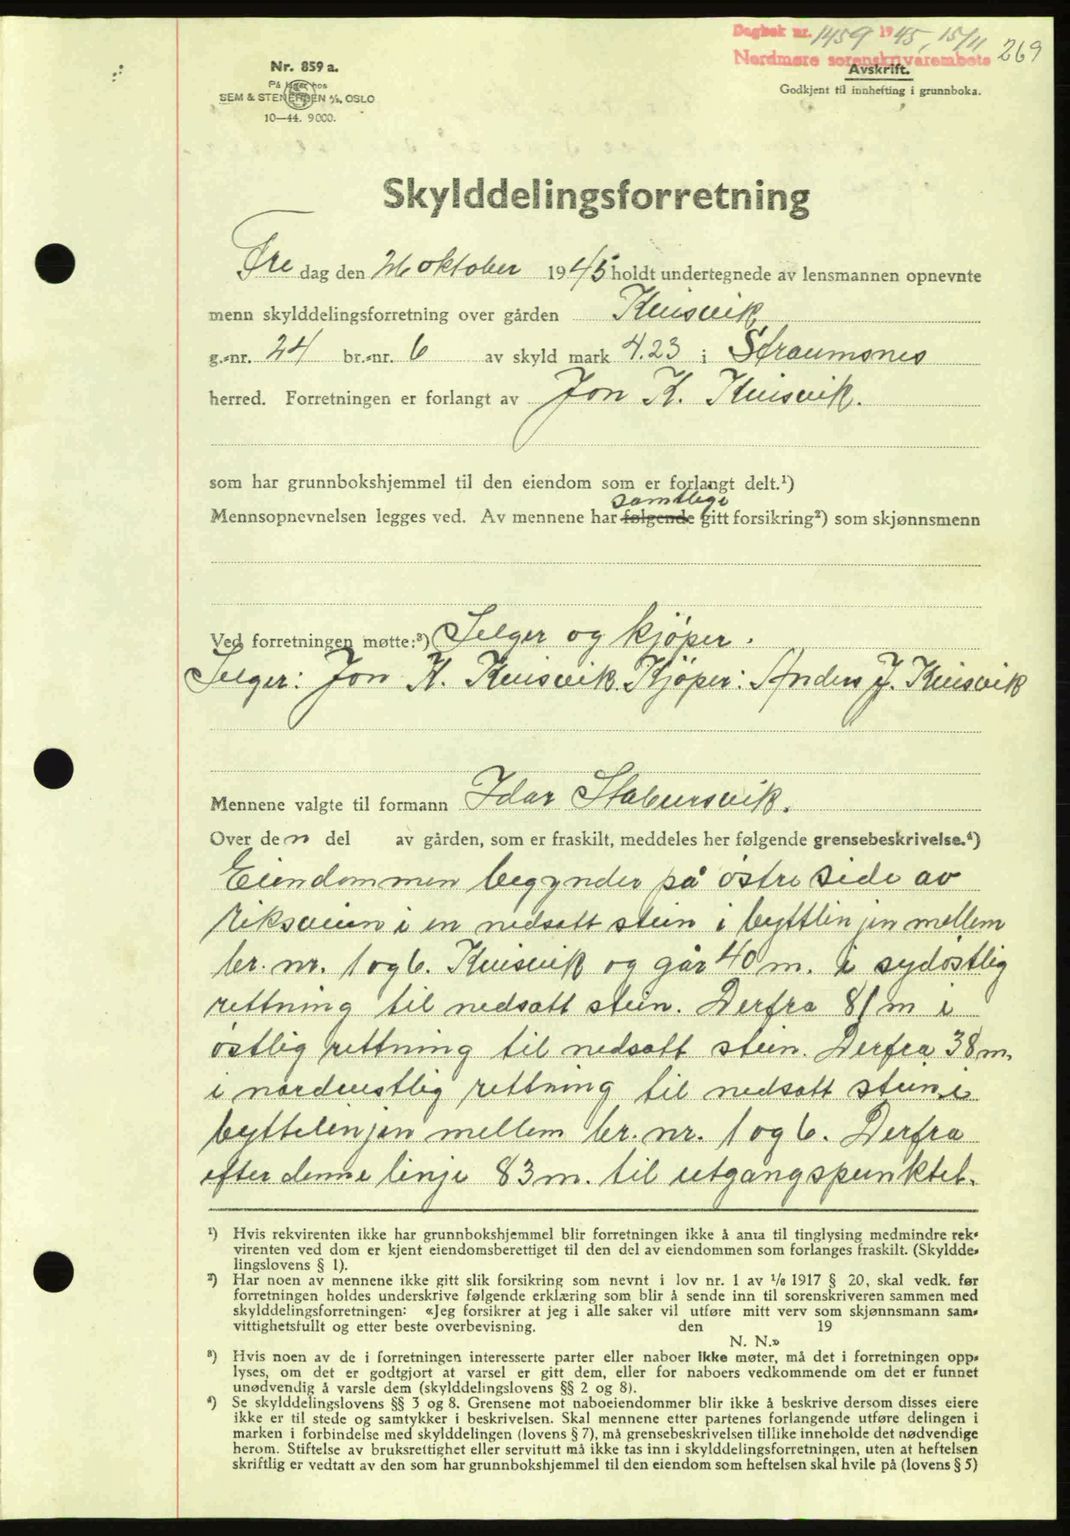 Dagbok nr. 1459 1945, 15/11 269
Nordmøre sorenskrivarembete
Nr. 859 a.
På lager hos
SEM & STENERSEN A/S, OSLO
10—44. 9000.
Avskrift.
Godkjent til innhefting i grunnboka.
Skylddelingsforretning
Fre dag den 26 oktober 1945 holdt undertegnede av lensmannen opnevnte
menn skylddelingsforretning over gården Kvisvik
g.-nr. 24 br.-nr. 6 av skyld mark 4.23 i Straumsnes
herred. Forretningen er forlangt av Jon K. Kvisvik.
som har grunnbokshjemmel til den eiendom som er forlangt delt.¹)
samtlege
Mennsopnevnelsen legges ved. Av mennene har følgende gitt forsikring²) som skjønnsmenn
Ved forretningen møtte:³) Selger og kjøper.
Selger: Jon K. Kvisvik. Kjøper: Anders J. Kvisvik
Mennene valgte til formann Idar Stabursvik.
Over den del av gården, som er fraskilt, meddeles her følgende grensebeskrivelse.⁴)
Eiendommen begynder på østre side av
riksveien i en nedsatt stein i byttlinjen mellem
br. nr. 1 og 6. Kvisvik og går 40 m. i sydøstlig
rettning til nedsatt stein. Derfra 81 m i
østlig rettning til nedsatt stein. Derfra 38 m.
i nordvestlig rettning til nedsatt stein i
byttelinjen mellem br. nr. 1 og 6. Derfra
efter denne linje 83 m. til utgangspunktet.
¹) Hvis rekvirenten ikke har grunnbokshjemmel blir forretningen ikke å anta til tinglysing medmindre rek-
virenten ved dom er kjent eiendomsberettiget til den del av eiendommen som forlanges fraskilt. (Skyldde-
lingslovens § 1).
²) Har noen av mennene ikke gitt slik forsikring som nevnt i lov nr. 1 av 1/6 1917 § 20, skal vedk. før
forretningen holdes underskrive følgende erklæring som blir å sende inn til sorenskriveren sammen med
skylddelingsforretningen: «Jeg forsikrer at jeg i alle saker vil utføre mitt verv som skjønnsmann sam-
vittighetsfullt og etter beste overbevisning. den 19
N. N.»
³) Hvis noen av de i forretningen interesserte parter eller naboer ikke møter, må det i forretningen opp-
lyses, om det er godtgjort at varsel er gitt dem, eller for naboers vedkommende om det er funnet
unødvendig å varsle dem (skylddelingslovens §§ 2 og 8).
⁴) Se skylddelingslovens §§ 3 og 8. Grensene mot naboeiendommer blir ikke å beskrive dersom disses eiere
ikke er til stede og samtykker i beskrivelsen. Skal mennene etter partenes forlangende utføre delingen i
marken i forbindelse med skylddelingen (lovens § 7), må grensebeskrivelsen tillike inneholde det nødvendige
herom. Stiftelse av bruksrettighet eller servitutt må ikke tas inn i skylddelingsforretningen, uten at heftelsen
skriftlig er vedtatt av den som har grunnbokshjemmel til den eiendom som heftelsen skal hvile på (lovens § 5)